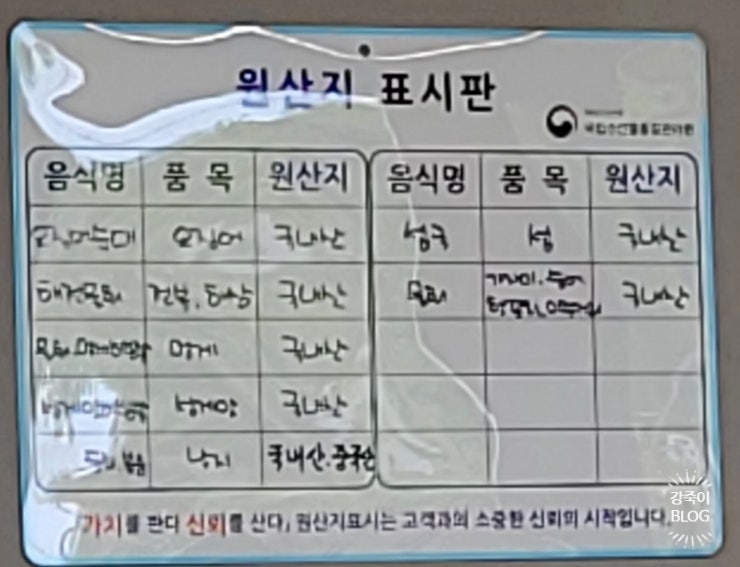 원산지 표시판
국립수산물품질관리원
음식명 품 목 원산지 음식명 품 목 원산지
오징어순대 오징어 국내산 섭국 섭 국내산
해전물회 전복, 해삼 국내산 물회 가자미, 국내산
멍게 국내산
성게알 성게알 국내산
낙지 국내산, 중국산
가치를 판다 신뢰를 산다, 원산지표시는 고객과의 소중한 신뢰의 시작입니다.
강죽이
BLOG